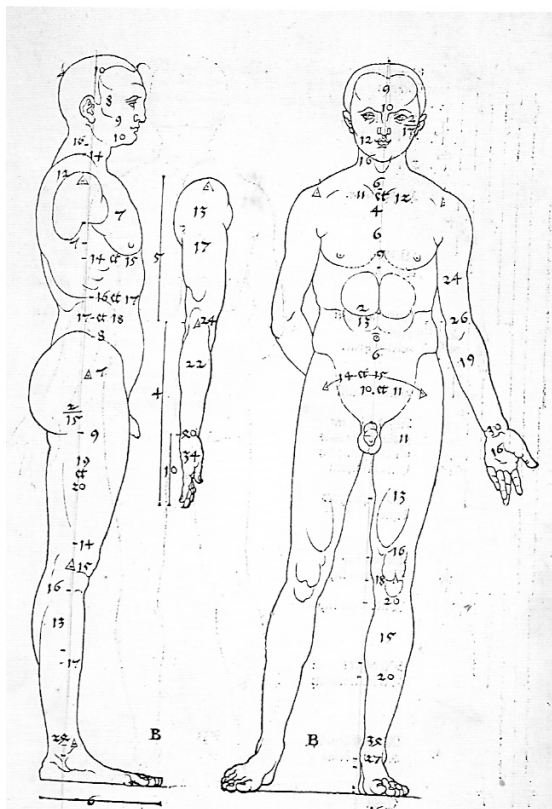 10
8
9
10
16
14
12
7
14 et 15
16 et 17
17 et 18
8
7
2
15
9
19
et
20
14
15
16
13
17
B
6
13
17
5
24
22
4
20
34
10
9
10
12
17
16
6
11 et 12
4
6
9
24
2
13
26
6
19
14 et 15
10 et 11
20
16
11
13
16
18
20
15
20
B
35
27